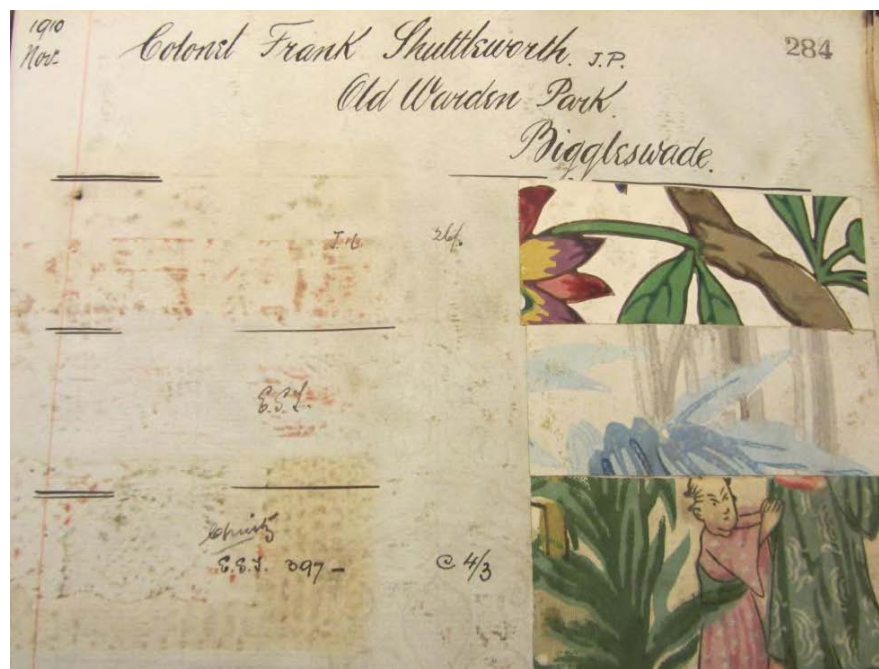 1910
Nov.
Colonel Frank Shuttleworth. J.P.
284
Old Warden Park
Biggleswade.
26/.
E.S.J.
Chintz
E.S.J. 397 – @ 4/3